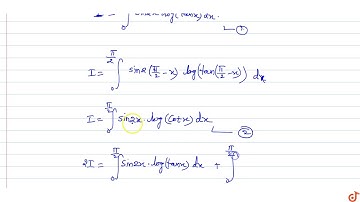 I = ∫₀ sin2x · log(tanx) dx. ①
I = ∫₀^{π/2} sin2(π/2 - x) · log(tan(π/2 - x)) dx
I = ∫₀^{π/2} sin2x · log(cotx) dx ②
2I = ∫₀^{π/2} sin2x · log(tanx) dx + ∫₀^{π/2}